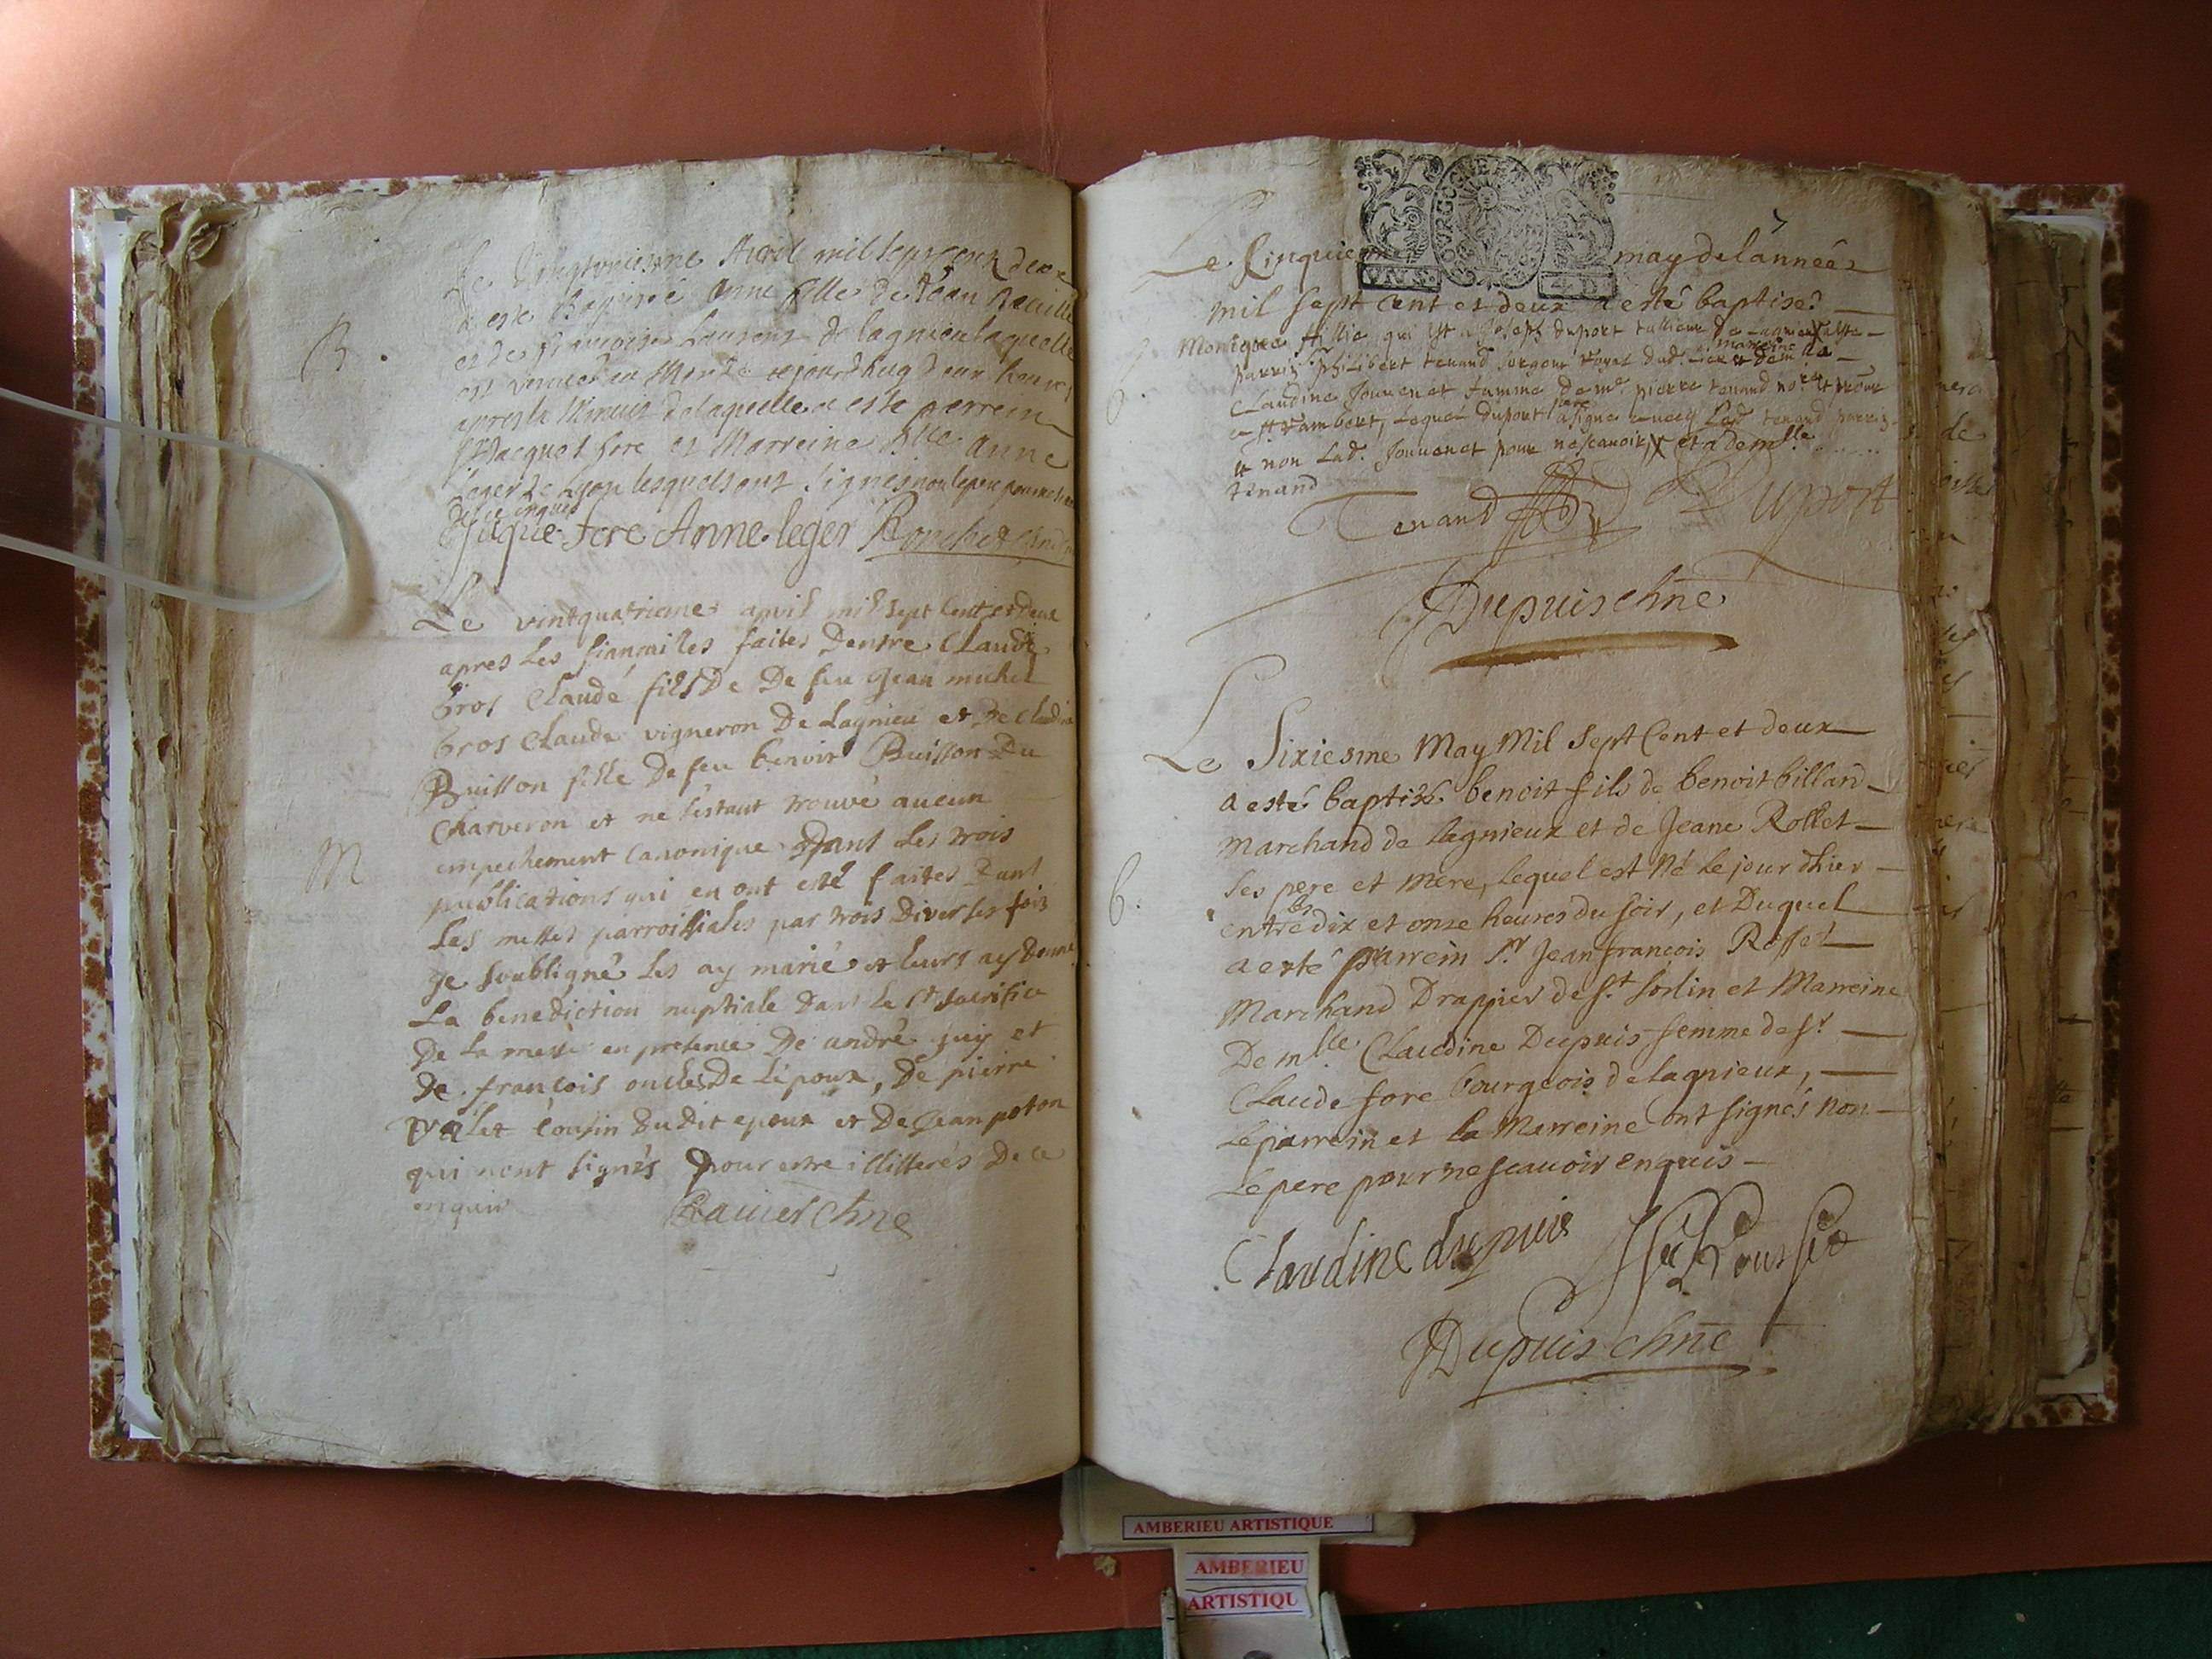 Le Avril mil sept cent deux
a este Baptisé Anne fille de Jean
et de françoise Laurent de lagnieu laquelle
est venue au Monde aujourdhuy deux heures
apres la Minuit de laquelle a este perrein
Jacque fore et Marreine dlle Anne
Leger de Lyon lesquels ont signes non le pere pour
de ce enquis
Jaque fore Anne leger
B.
Le vintquatrieme apvil mil sept Cent et deux
apres Les fiançailles faites Dentre Claude
Gros Claude fils De De feu Jean michel
Gros Claude vigneron De Lagnieu et De Claudine
Buisson fille De feu benoit Buisson Du
Charveron et ne sestant trouvé aucun
empechement Canonique Dans Les trois
M
publications qui en ont esté faites Dans
Les messes parroissiales par trois Diverses fois
Je soubsigné Les ay marié et leurs ay Donné
La benediction nuptiale Dans Le st sacrifice
De La messe en presence De andré et
De françois oncles De Lépoux, De pierre
valet cousin Dudit epoux et De Jean poton
qui nont signés pour estre illitterés De ce
enquis
chne
Le Cinquieme may de lannéé
mil sept cent et deux a esté baptisé
Monique fillie qui est a Joseph duport De Lagnieu
parrin sr philibert tenand royal dud. Lieu et demlle
marreine
Claudine Jouvenet famme De me pierre tenand
a st rambert, Lequel duport pere a signé avecq Led tenand parrin
et non Lad. Jouvenet pour ne scavoir, X et a demlle
tenand
b.
Tenand Duport
Dupuis chne
Le Sixiesme May Mil sept Cent et deux
a esté baptisé benoit fils de benoit billiard
Marchand de lagnieux et de Jeane Rollet
ses pere et mere, lequel est Né le jour dhier
b.
entre les dix et onze heures du soir, et Duquel
a esté parrein sr Jean françois Rosset
Marchand Drappier de st sorlin et Marreine
Demlle Claudine Dupuis femme de sr
Claude fore bourgeois de lagnieux,
Le parrein et la Marreine ont signés non
Le pere pour ne scauoir enquis
Claudine dupuis
Dupuis chne
AMBERIEU ARTISTIQUE
AMBERIEU
ARTISTIQU